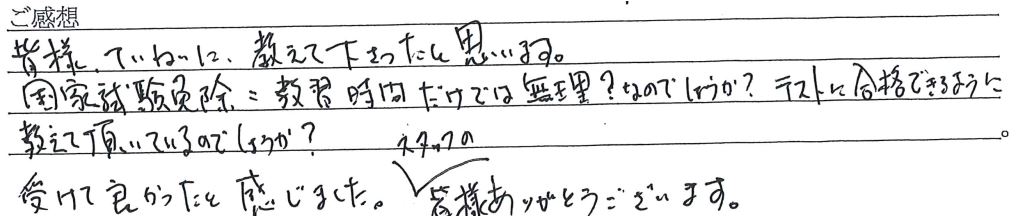 ご感想
皆様、ていねいに、教えて下さったと思います。
国家試験免除＝教習時間だけでは無理？なのでしょうか？テストに合格できるように
教えて頂いているのでしょうか？
受けて良かったと感じました。スタッフの皆様ありがとうございます。